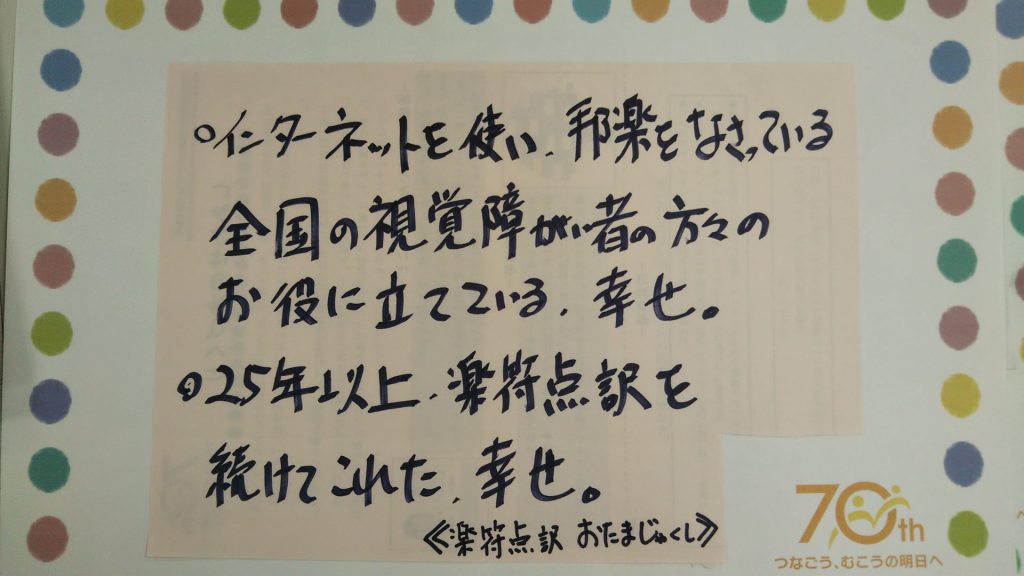 ○インターネットを使い、邦楽をなさっている
全国の視覚障がい者の方々の
お役に立てている、幸せ。
○25年以上、楽符点訳を
続けてこれた、幸せ。
≪楽符点訳 おたまじゃくし≫
70th
つなごう、むこうの明日へ